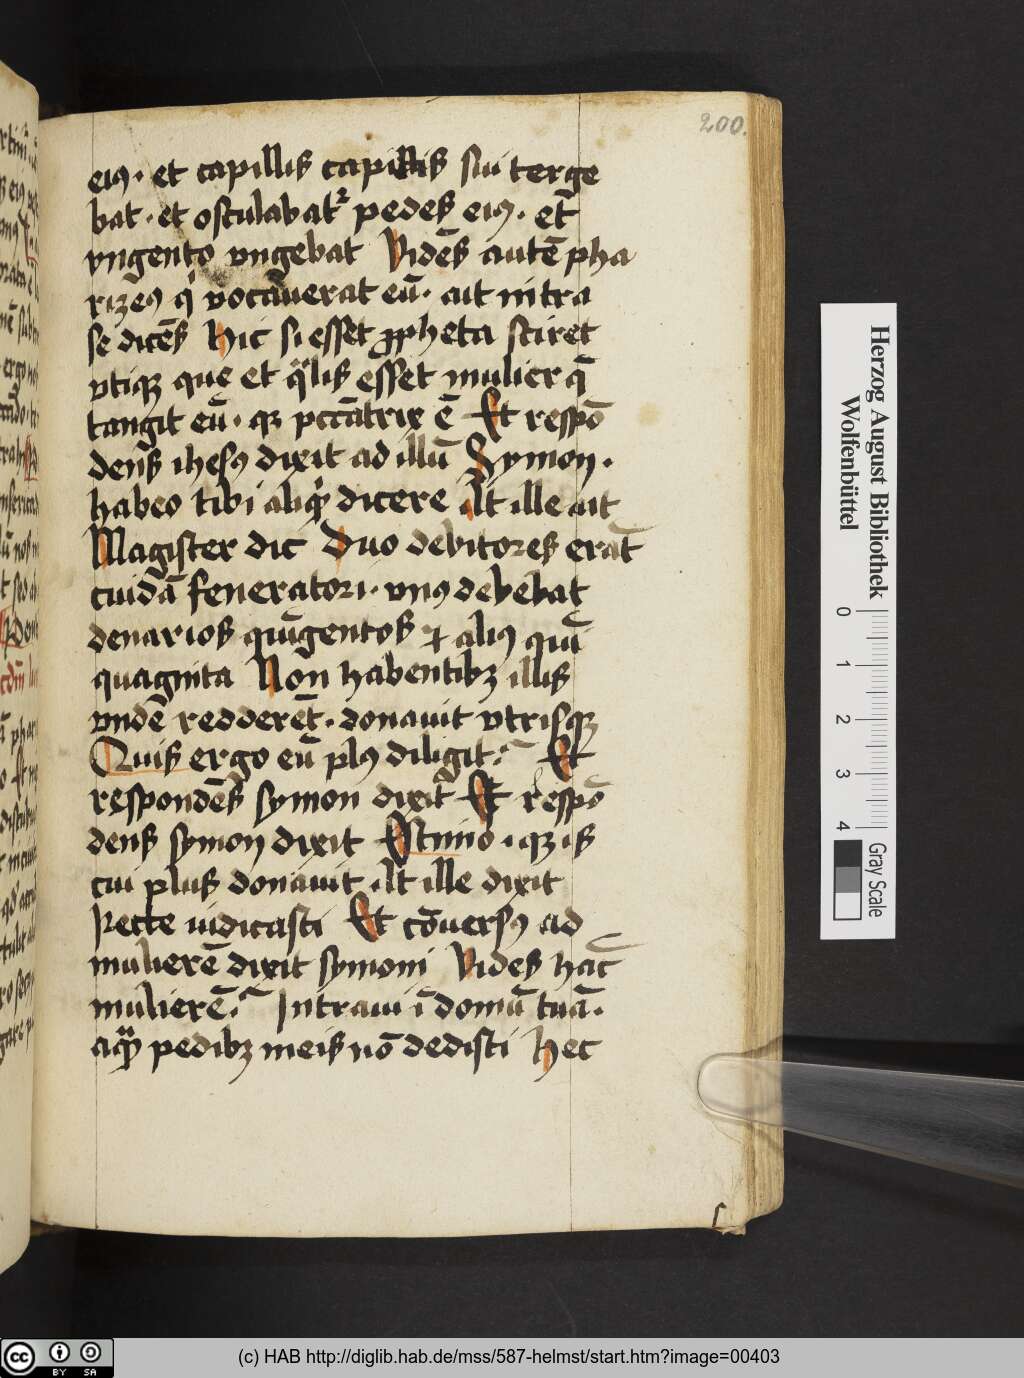 200.
eiꝰ · et capillis capillis sui terge
bat · et osculabatr pedes eiꝰ · et̄
vngento vngebat Vidēs autē pha
rizeꝰ qͥ vocaūerat eū · ait intra
se dicēs Hic si esset ꝓpheta sciret
vtiqꝫ que et qͣlis esset mulier q̄
tangit eū · qꝫ pccātrix ē Et respō
dens ihesꝰ dixit ad illū Symon ·
habeo tibi aliqͥd dicere At ille ait
Magister dic Duo debitores erāt
cuidā feneratori · vnꝰ debebat
denarios quīgentos ⁊ aliꝰ quī
quaginta Non habentibꝫ illis
vndē redderēt · donauit vtrisqꝫ
Quis ergo eū plꝰ diligit Et
respondēs symon dixit Et respō
dens symon dixit Estimo · qꝫ is
cui plus donauit At ille dixit
Recte iudicasti Et cōuersꝰ ad
mulierē dixit symoni Vides hāc
mulierē Intraui ī domū tuā ·
aqͣ pedibꝫ meis nō dedisti Hec
Herzog August Bibliothek
Wolfenbüttel
0 1 2 3 4
Gray Scale
cc BY SA
(c) HAB http://diglib.hab.de/mss/587-helmst/start.htm?image=00403